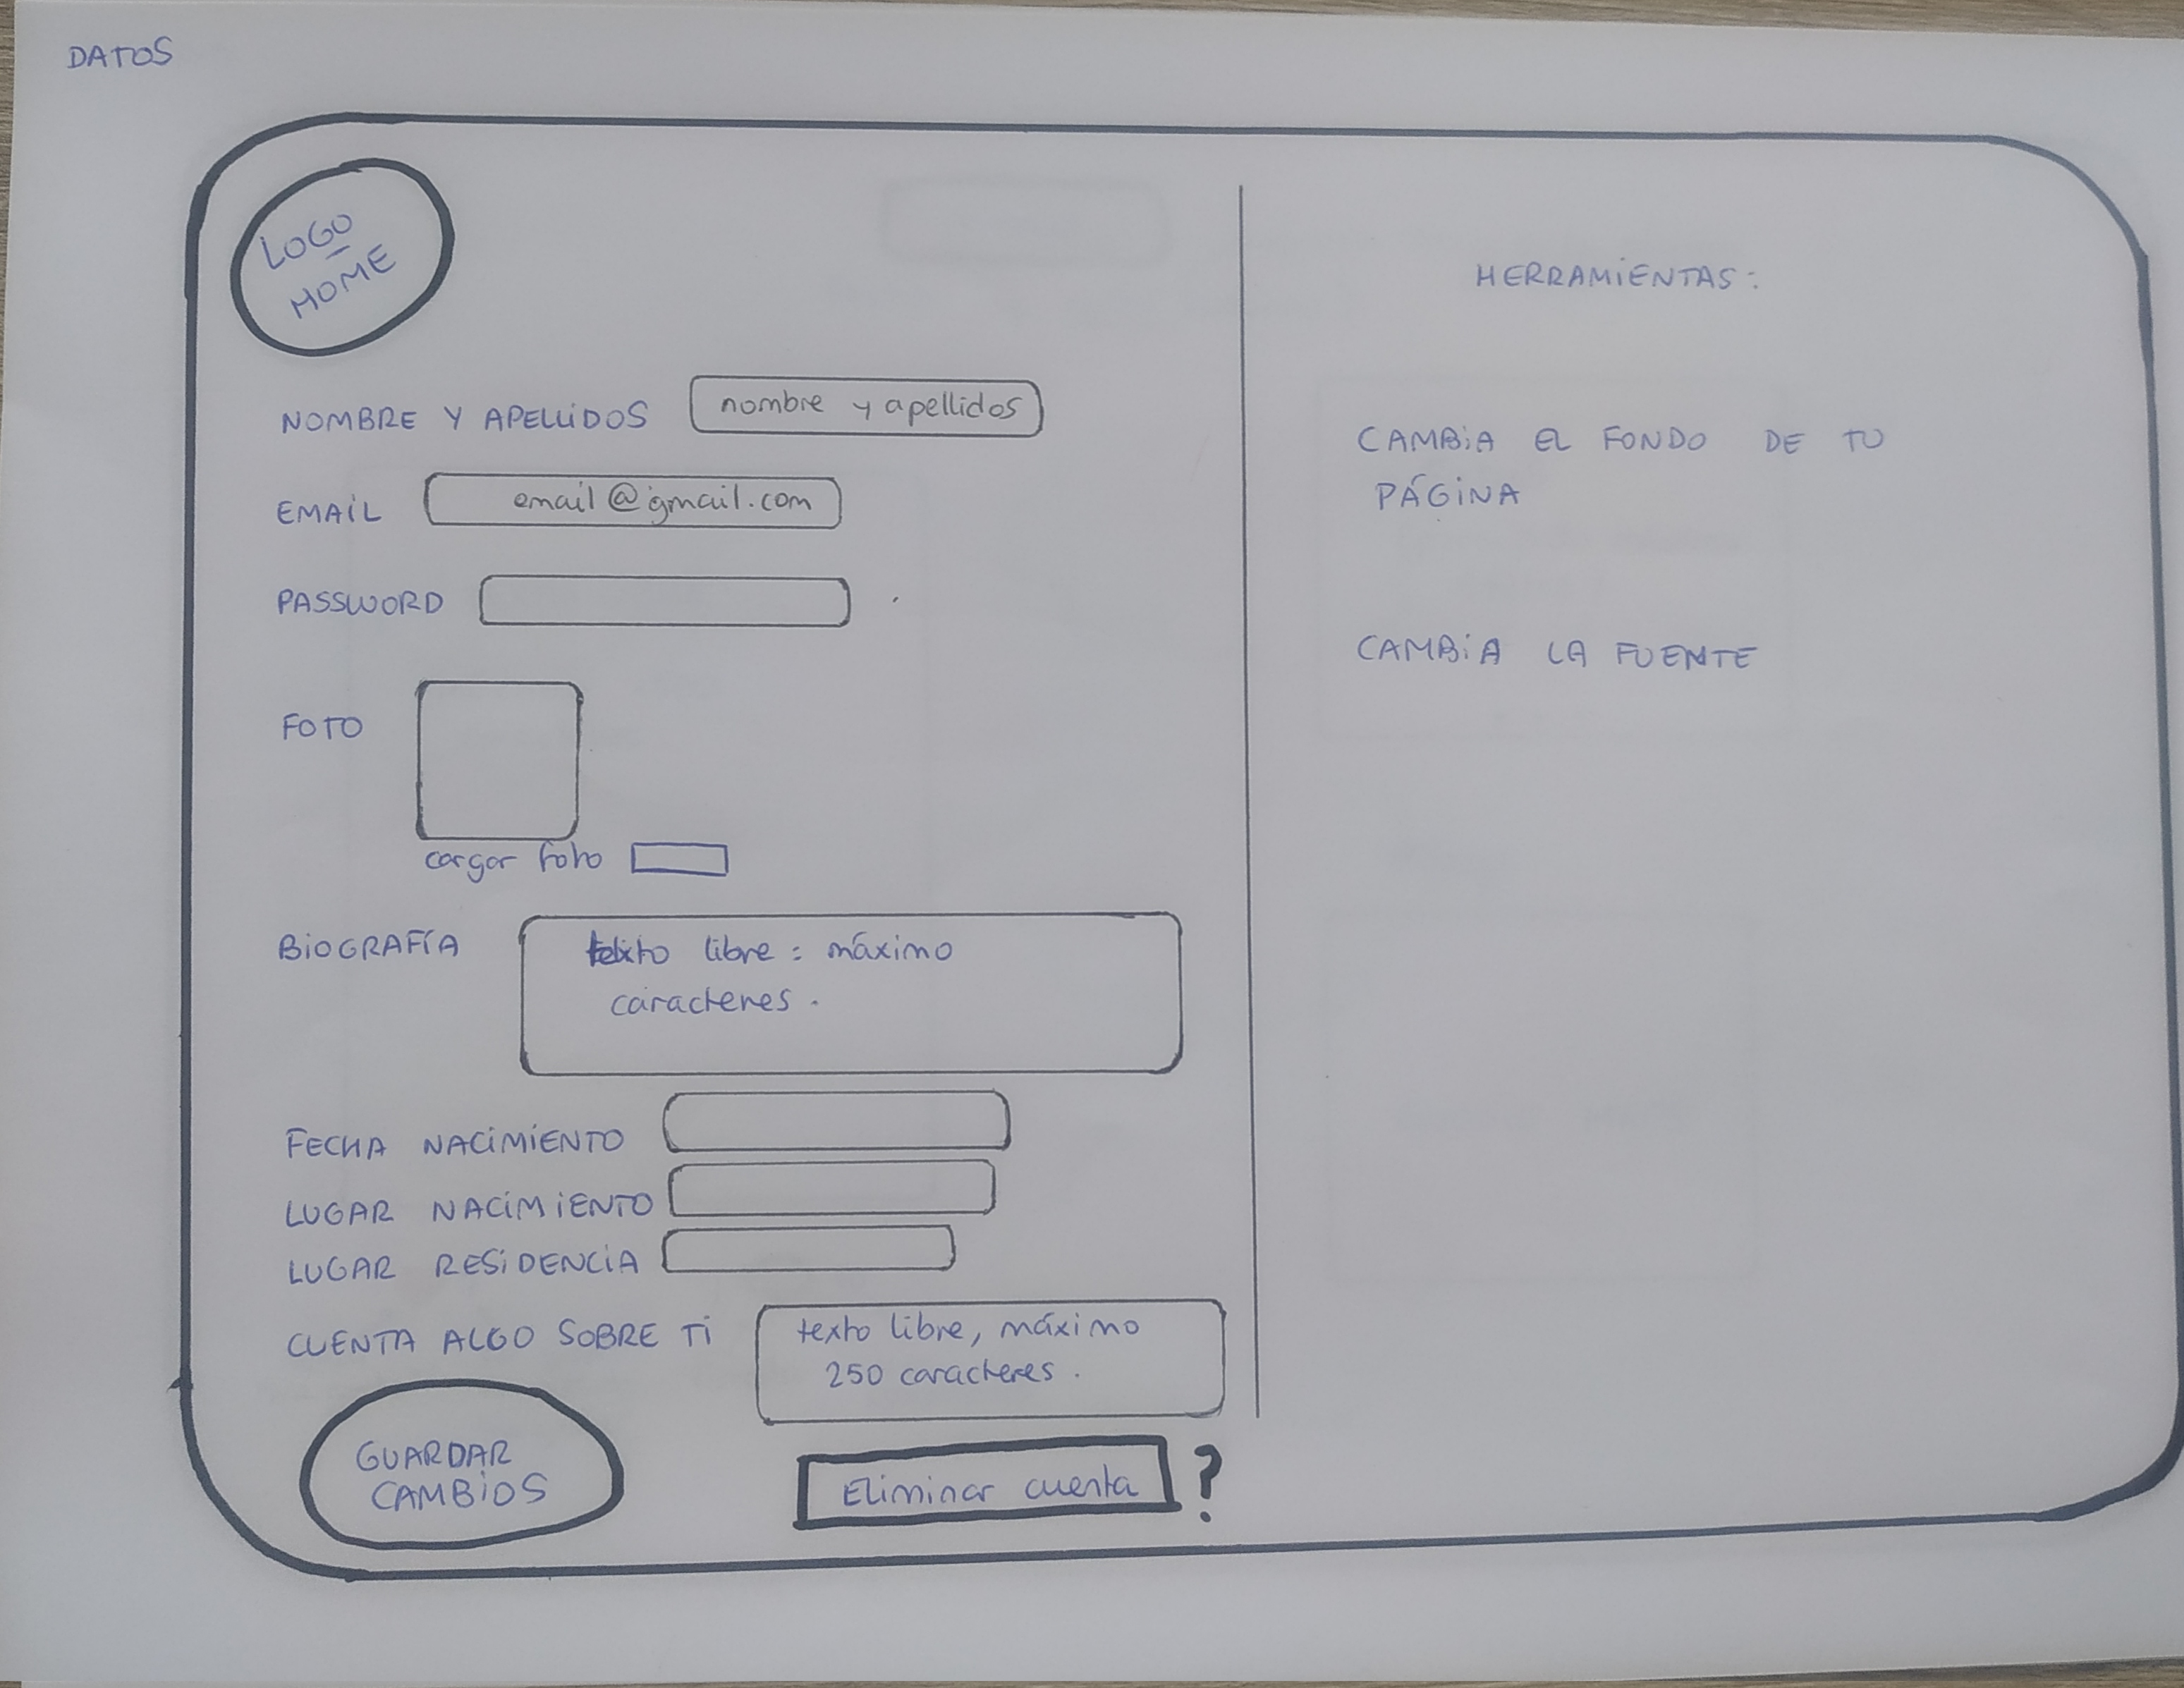 DATOS
LOGO
HOME
NOMBRE Y APELLIDOS
nombre y apellidos
EMAIL
email@gmail.com
PASSWORD
FOTO
cargar foto
BIOGRAFÍA
texto libre : máximo
caracteres.
FECHA NACIMIENTO
LUGAR NACIMIENTO
LUGAR RESIDENCIA
CUENTA ALGO SOBRE TI
texto libre, máximo
250 caracteres.
GUARDAR
CAMBIOS
Eliminar cuenta ?
HERRAMIENTAS:
CAMBIA EL FONDO DE TU
PÁGINA
CAMBIA LA FUENTE